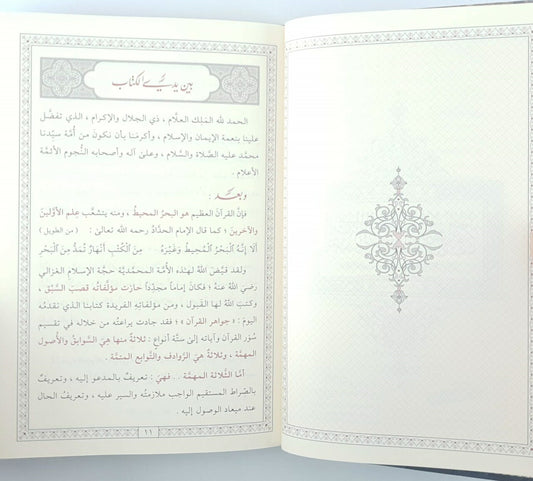 بين يدي الكتاب
الحمد لله الملك العلَّام ، ذي الجلال والإكرام ، الذي تفضَّل
علينا بنعمة الإيمان والإسلام ، وأكرمنا بأن نكون من أُمَّة سيِّدنا
محمَّد عليه الصَّلاة والسَّلام ، وعلىٰ آله وأصحابه النُّجوم الأئمَّة
الأعلام .
وبعـد :
فإنَّ القرآن العظيم هو البحرُ المحيطُ ، ومنه يتشعَّب علم الأوَّلينَ
والآخرينَ ؛ كما قال الإمام الحدَّادُ رحمه الله تعالىٰ : ( من الطويل )
أَلَا إِنَّهُ ٱلْبَحْرُ ٱلْمُحِيطُ وَغَيْرُهُ . . . مِنَ ٱلْكُتْبِ أَنْهَارٌ تُمَدُّ مِنَ ٱلْبَحْرِ
ولقد قيَّضَ اللهُ لهـٰذه الأمَّة المحمديَّة حجَّة الإسلام الغزالي
رضيَ اللهُ عنهُ ؛ فكانَ إماماً مجدِّداً حازت مؤلَّفاتُه قصبَ السَّبْق ،
وكتبَ اللهُ لها القَبول ، ومن مؤلفاته الفريدة كتابنا الذي نقدمه
اليومَ : « جواهر القرآن » ؛ فقد جادت يراعتُه من خلاله في تقسيم
سُوَر القرآن وآياته إلىٰ ستَّة أنواعٍ : ثلاثةٌ منها هيَ السَّوابق والأُصول
المهمَّة ، وثلاثةٌ هيَ الرَّوادف والتَّوابع المتمَّة .
أمَّا الثَّلاثة المهمَّة . . فهيَ : تعريفٌ بالمدعو إليه ، وتعريفٌ
بالصِّراط المستقيم الواجب ملازمتُه والسير عليه ، وتعريفُ الحال
عند ميعاد الوصول إليه .
١١